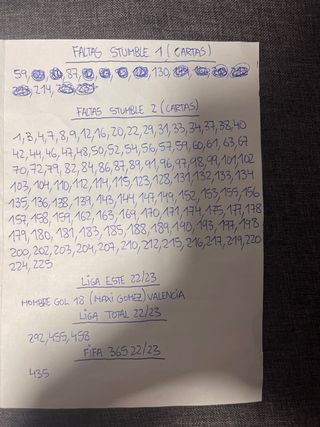 FALTAS STUMBLE 1 (CARTAS)
59, 87, 130, 214,
FALTAS STUMBLE 2 (CARTAS)
1, 3, 4, 7, 8, 9, 12, 16, 20, 22, 29, 31, 33, 34, 37, 38, 40
42, 44, 46, 47, 48, 50, 52, 54, 56, 57, 59, 60, 61, 63, 67
70, 72, 79, 82, 84, 86, 87, 89, 91, 96, 97, 98, 99, 101, 102
103, 104, 110, 112, 114, 115, 123, 128, 131, 132, 133, 134
135, 136, 138, 139, 143, 144, 147, 149, 152, 153, 155, 156
157, 158, 159, 162, 163, 169, 170, 171, 174, 175, 177, 178
179, 180, 181, 183, 185, 188, 189, 190, 193, 197, 198
200, 202, 203, 204, 207, 210, 212, 215, 216, 217, 219, 220
224, 225
LIGA ESTE 22/23
HOMBRE GOL 18 (MAXI GOMEZ) VALENCIA
LIGA TOTAL 22/23
292, 455, 458
FIFA 365 22/23
435